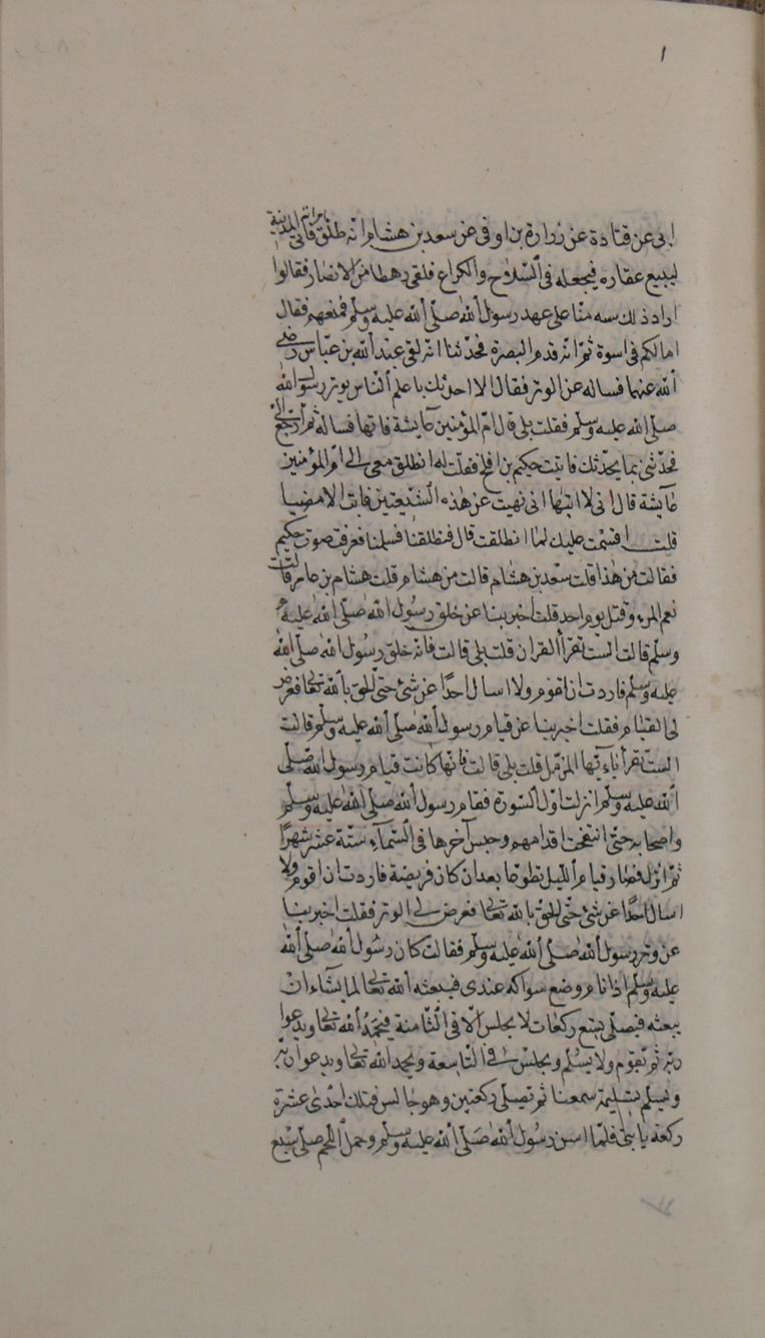 ١
ابى عن قتادة عن زرارة بن اوفى عن سعد بن هشام انه طلق امراته فاتى المدينة
ليبيع عقاره فيجعله فى السلاح والكراع فلقى رهطا من الانصار فقالوا
اراد ذلك سه منا على عهد رسول الله صلى الله عليه وسلم فمنعهم فقال
امالكم فى اسوة ثم انه قدم البصرة فحدثنا انه لقى عبد الله بن عباس رضى
الله عنهما فساله عن الوتر فقال الا احدثك باعلم الناس بوتر رسول الله
صلى الله عليه وسلم فقلت بلى قال ام المؤمنين عايشة فاتها فساله ثم ارجع الى
فحدثنى بما يحدثك فاتيت حكيم بن افلح فقلت له انطلق معى الى ام المؤمنين
عايشة قال انى لا اتيها انى نهيت عن هذه الشيعتين فابت الا مضيا
قلت اقسمت عليك لما انطلقت قال فنطلقنا فسلمنا فعرفت صوت حكيم
فقالت من هذا قلت سعد بن هشام قالت من هشام قلت هشام بن عامر قالت
نعم المرء وقتل يوم احد قلت اخبرينا عن خلق رسول الله صلى الله عليه
وسلم قالت الست تقرأ القران قلت بلى قالت فانه خلق رسول الله صلى الله
عليه وسلم فاردت ان اقوم ولا اسال احدا عن شئ حتى الحق بالله تعالى فعرض
لى القيام فقلت اخبرينا عن قيام رسول الله صلى الله عليه وسلم قالت
الست تقرأ ياءيها المزمل قلت بلى قالت فانها كانت قيام رسول الله صلى
الله عليه وسلم انزلت اول السورة فقام رسول الله صلى الله عليه وسلم
واصحابه حتى انتفخت اقدامهم وحبس آخرها فى السماء ستة عشر شهرا
ثم انزل فصار قيام الليل تطوعا بعد ان كان فريضة فاردت ان اقوم ولا
اسال احدا عن شئ حتى الحق بالله تعالى فعرض لى الوتر فقلت اخبرينا
عن وتر رسول الله صلى الله عليه وسلم فقالت كان رسول الله صلى الله
عليه وسلم اذا نام وضع سواكه عندى فيبعثه الله تعالى لما يشاء ان
يبعثه فيصلى تسع ركعات لا يجلس الا فى الثامنة فيحمد الله تعالى ويدعوا
ربه ثم يقوم ولا يسلم ويجلس فى التاسعة ويحمد الله تعالى ويدعوا ربه
ويسلم تسليمة سمعنا ثم يصلى ركعتين وهو جالس فتلك احدى عشرة
ركعة يا بنى فلما اسن رسول الله صلى الله عليه وسلم وحمل اللحم صلى سبع